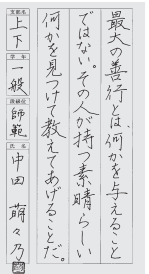 最大の善行とは何かを与えること
ではない。その人が持つ素晴らしい
何かを見つけて教えてあげることだ。
支部名
上下
学年
一般
段級位
師範
氏名
中田 萌々乃